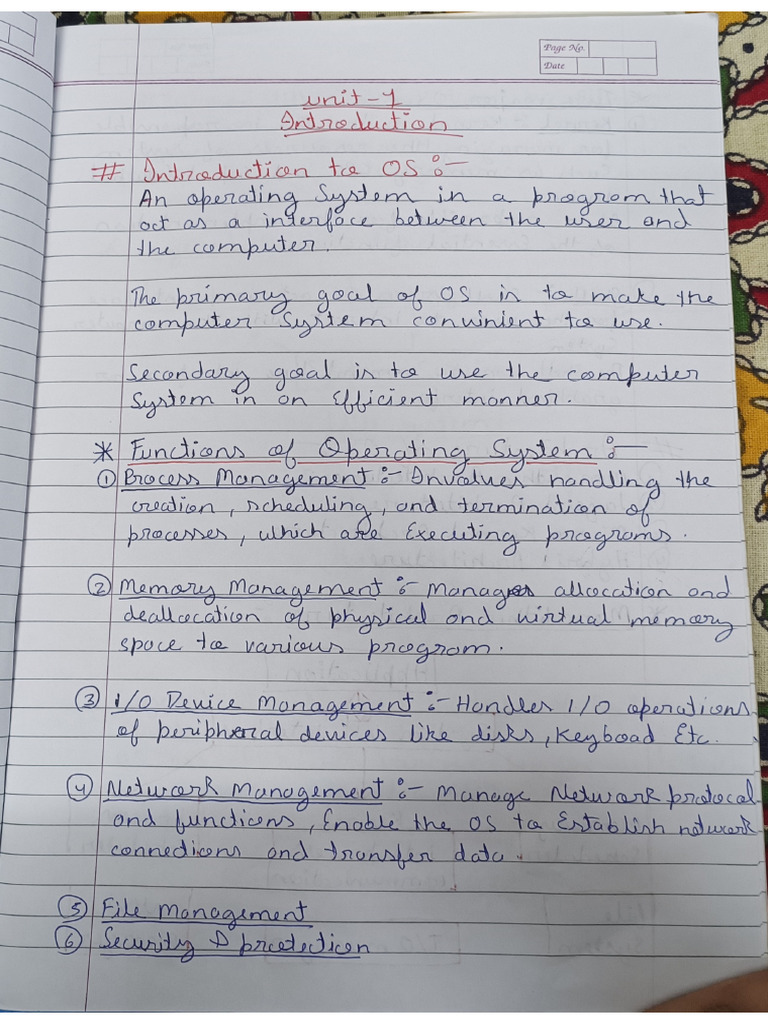 Page No.
Date
Unit-1
Introduction
# Introduction to OS :-
An operating System in a program that
act as a interface between the user and
the computer.
The primary goal of OS in to make the
computer System convinient to use.
Secondary goal is to use the computer
System in an Efficient manner.
* Functions of Operating System :-
① Process Management :- Involves handling the
creation, scheduling, and termination of
processes, which are Executing programs.
② Memory Management :- Manages allocation and
deallocation of physical and virtual memory
space to various program.
③ I/O Device Management :- Handles I/O operations
of peripheral devices like disks, keyboad Etc.
④ Network Management :- Manage Network protocol
and functions, Enable the OS to Establish network
connections and transfer data.
⑤ File Management
⑥ Security & protection